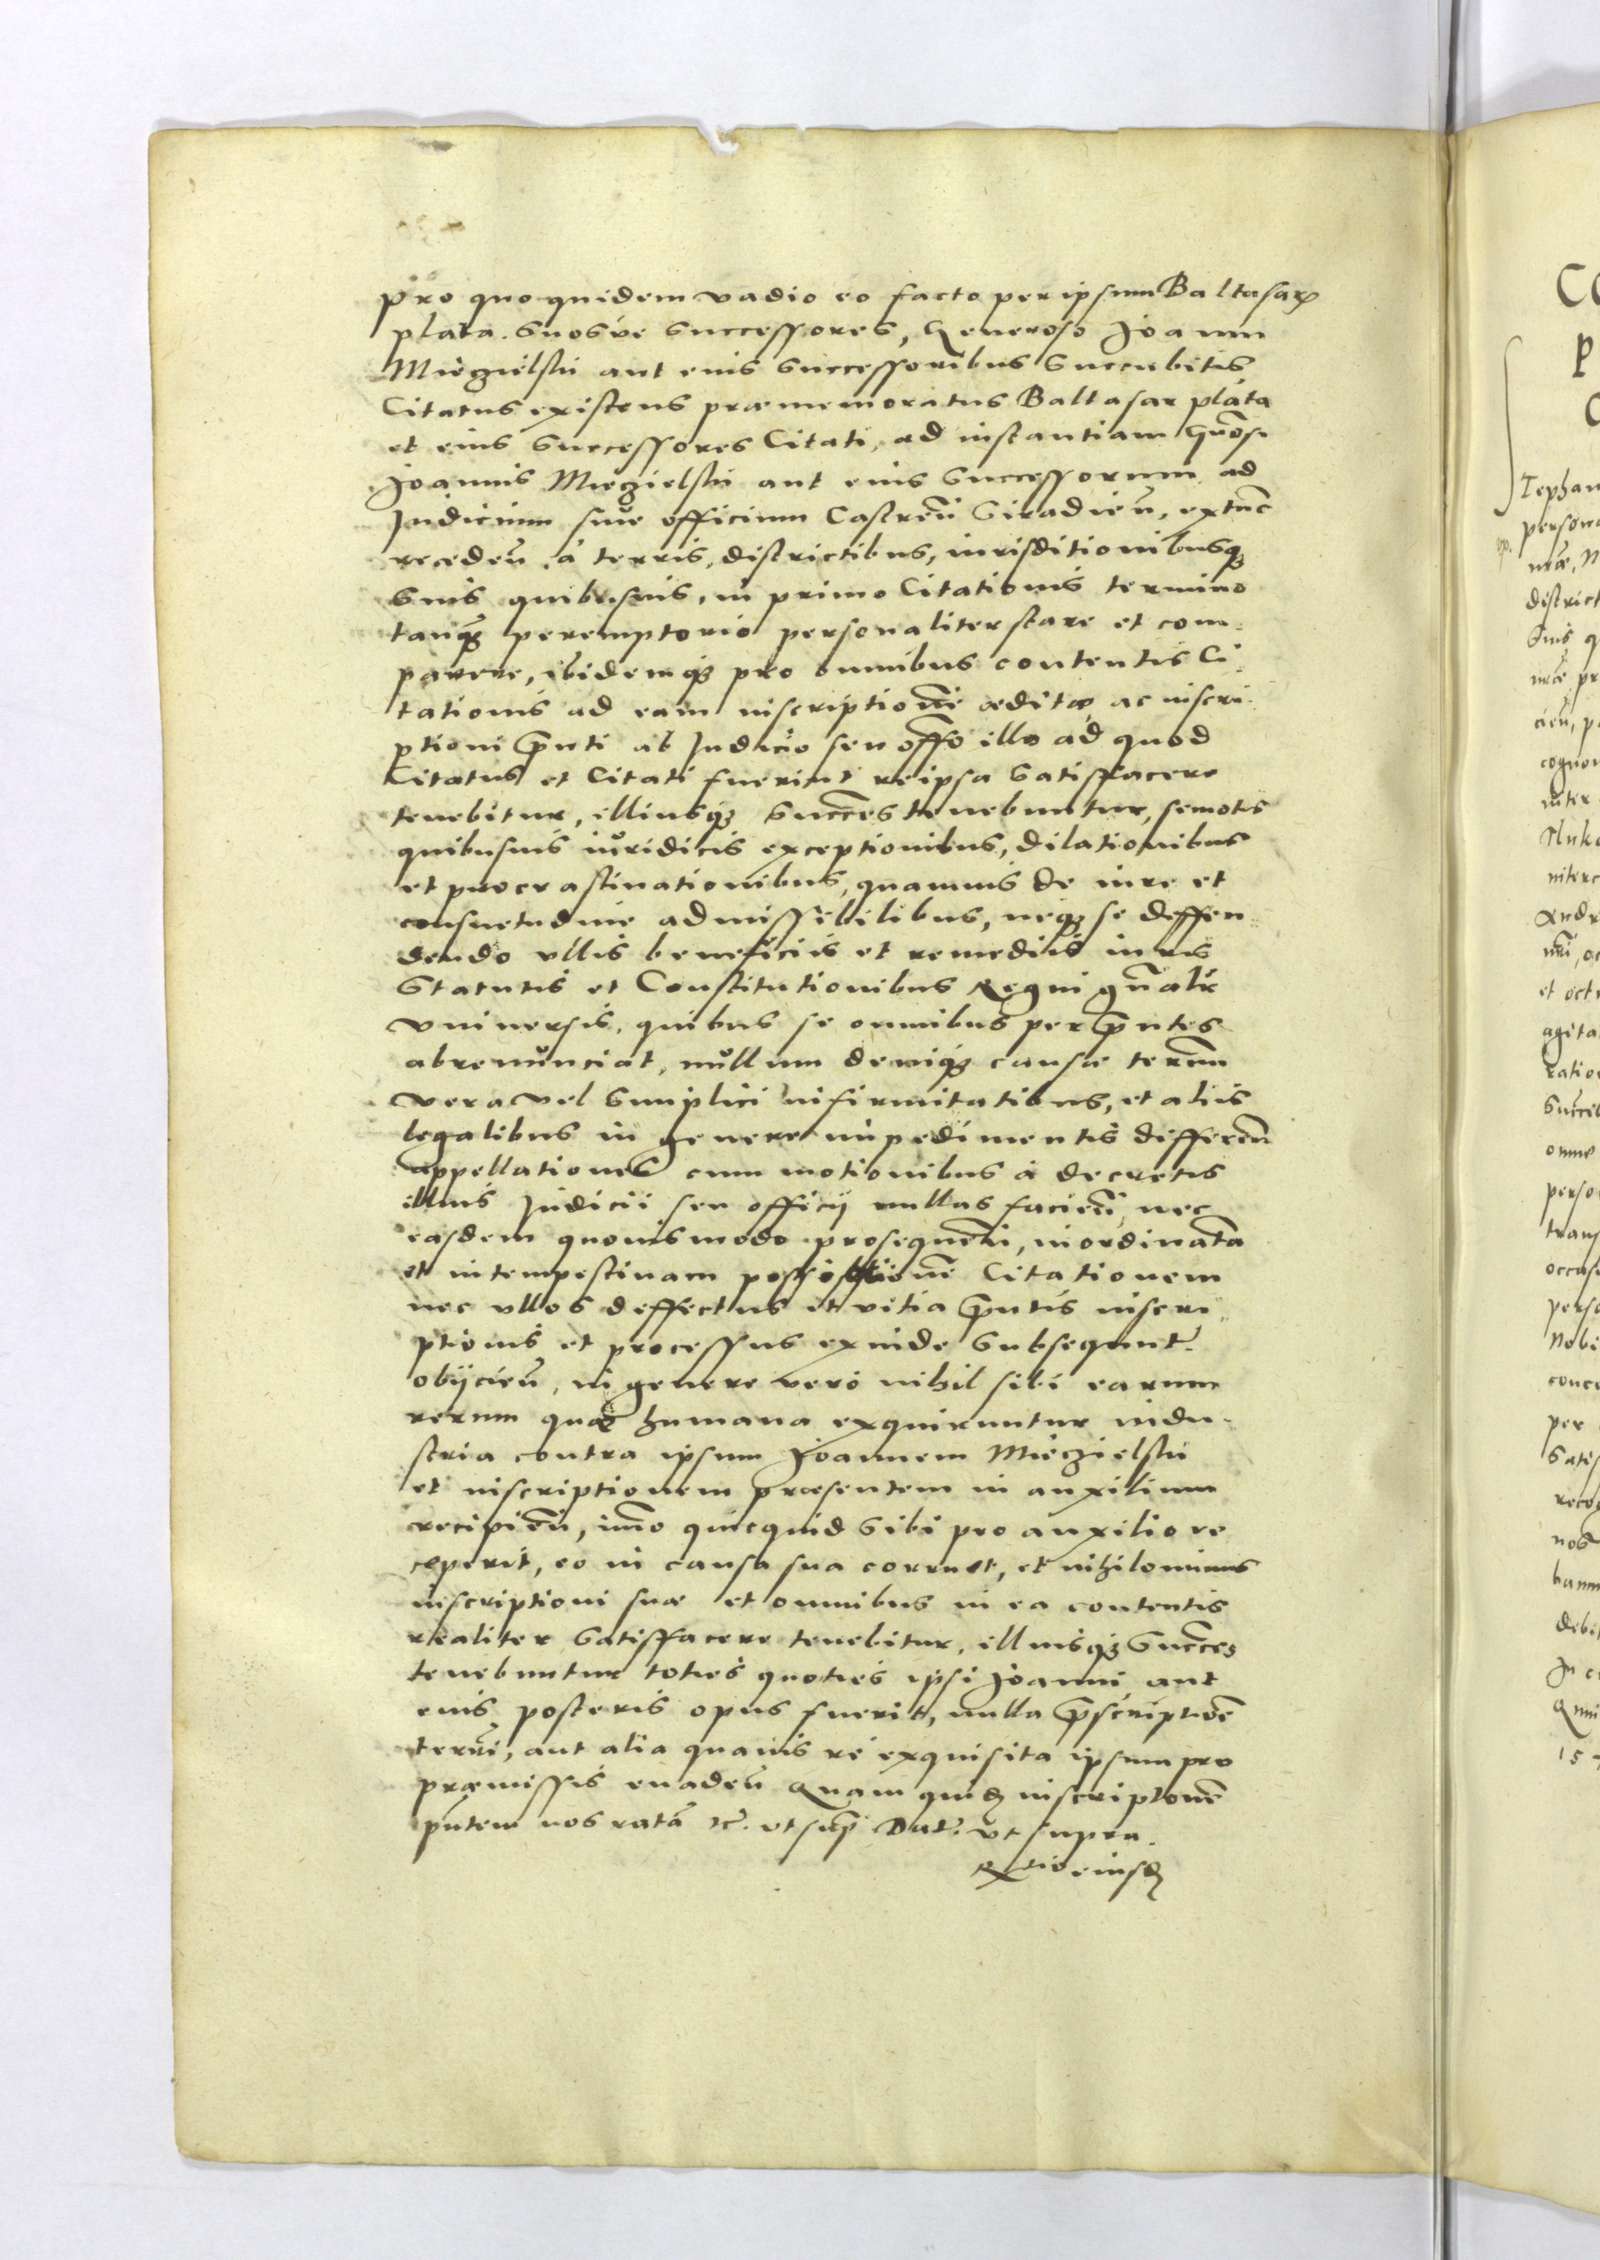 Pro quo quidem vadio eo facto per ipsum Baltasarẽ
plata. Suosve Successores, Generoso Joanni
Miegzielski aut eius Successoribus Succubitis
Citatus existens praememoratus Baltasar plata
et eius Successores Citati, ad instantiam Gñosi
Joannis Miegzielski aut eius Successorum ad
Judicium sive officium Castreñ Siradieñ, extũc
recedeñ à terris, districtibus, iurisditionibusq3
Suis quibusvis, in primo Citationis termino
tanq̃3 peremptorio personaliter stare et com-
parere, ibidemq3 pro omnibus contentis Ci-
tationis ad eam inscriptionẽ aeditae ac inscri-
ptioni p̃nti ab Judicio seu offõ illo ad quod
Citatus et Citati fuerint reipsa Satisfacere
tenebitur, illiusq3 Succẽs tenebuntur, semotis
quibusvis iuridicis exceptionibus, dilationibus
et procrastinationibus, quamvis de iure et
consuetudine admissibilibus, neq3 se deffen-
dendo ullis beneficiis et remediis iuris
Statutis et Constitutionibus Regni gñalir
universis, quibus se omnibus per p̃ntes
abrenunciat, nullum deniq3 causae termĩ
vera vel Simplici infirmitatibus, et aliis
legalibus in genere impedimentis differeñ
appellationes cum motionibus à decretis
illius Judicii seu officij nullas facieñ, nec
easdem quovismodo prosequeñ, inordinatã
et intempestivam positionẽ Citationem
nec ullos deffectus et vitia p̃ntis inscri-
ptionis et processus exinde Subsequeñt.
obijcieñ, in genere vero nihil sibi earum
rerum quae humana exquiruntur indu-
stria contra ipsum Joannem Miegzielski
et inscriptionem praesentem in auxilium
recipieñ, imõ quicquid Sibi pro auxilio re
ceperit, eo in causa sua corruet, et nihilominus
inscriptioni suae et omnibus in ea contentis
realiter Satisffacere tenebitur, illiusq3 Succẽs
tenebuntur toties quoties ipsi Joanni aut
eius posteris opus fuerit, nulla p̃scriptiõe
terrĩ, aut alia quavis re exquisita ipsum pro
praemissis evadeñ Quam quid₉ inscriptionẽ
p̃ntem nos ratã ec̃. ut sup̃ Dat. ut supra.
R̃tio eiusd₉